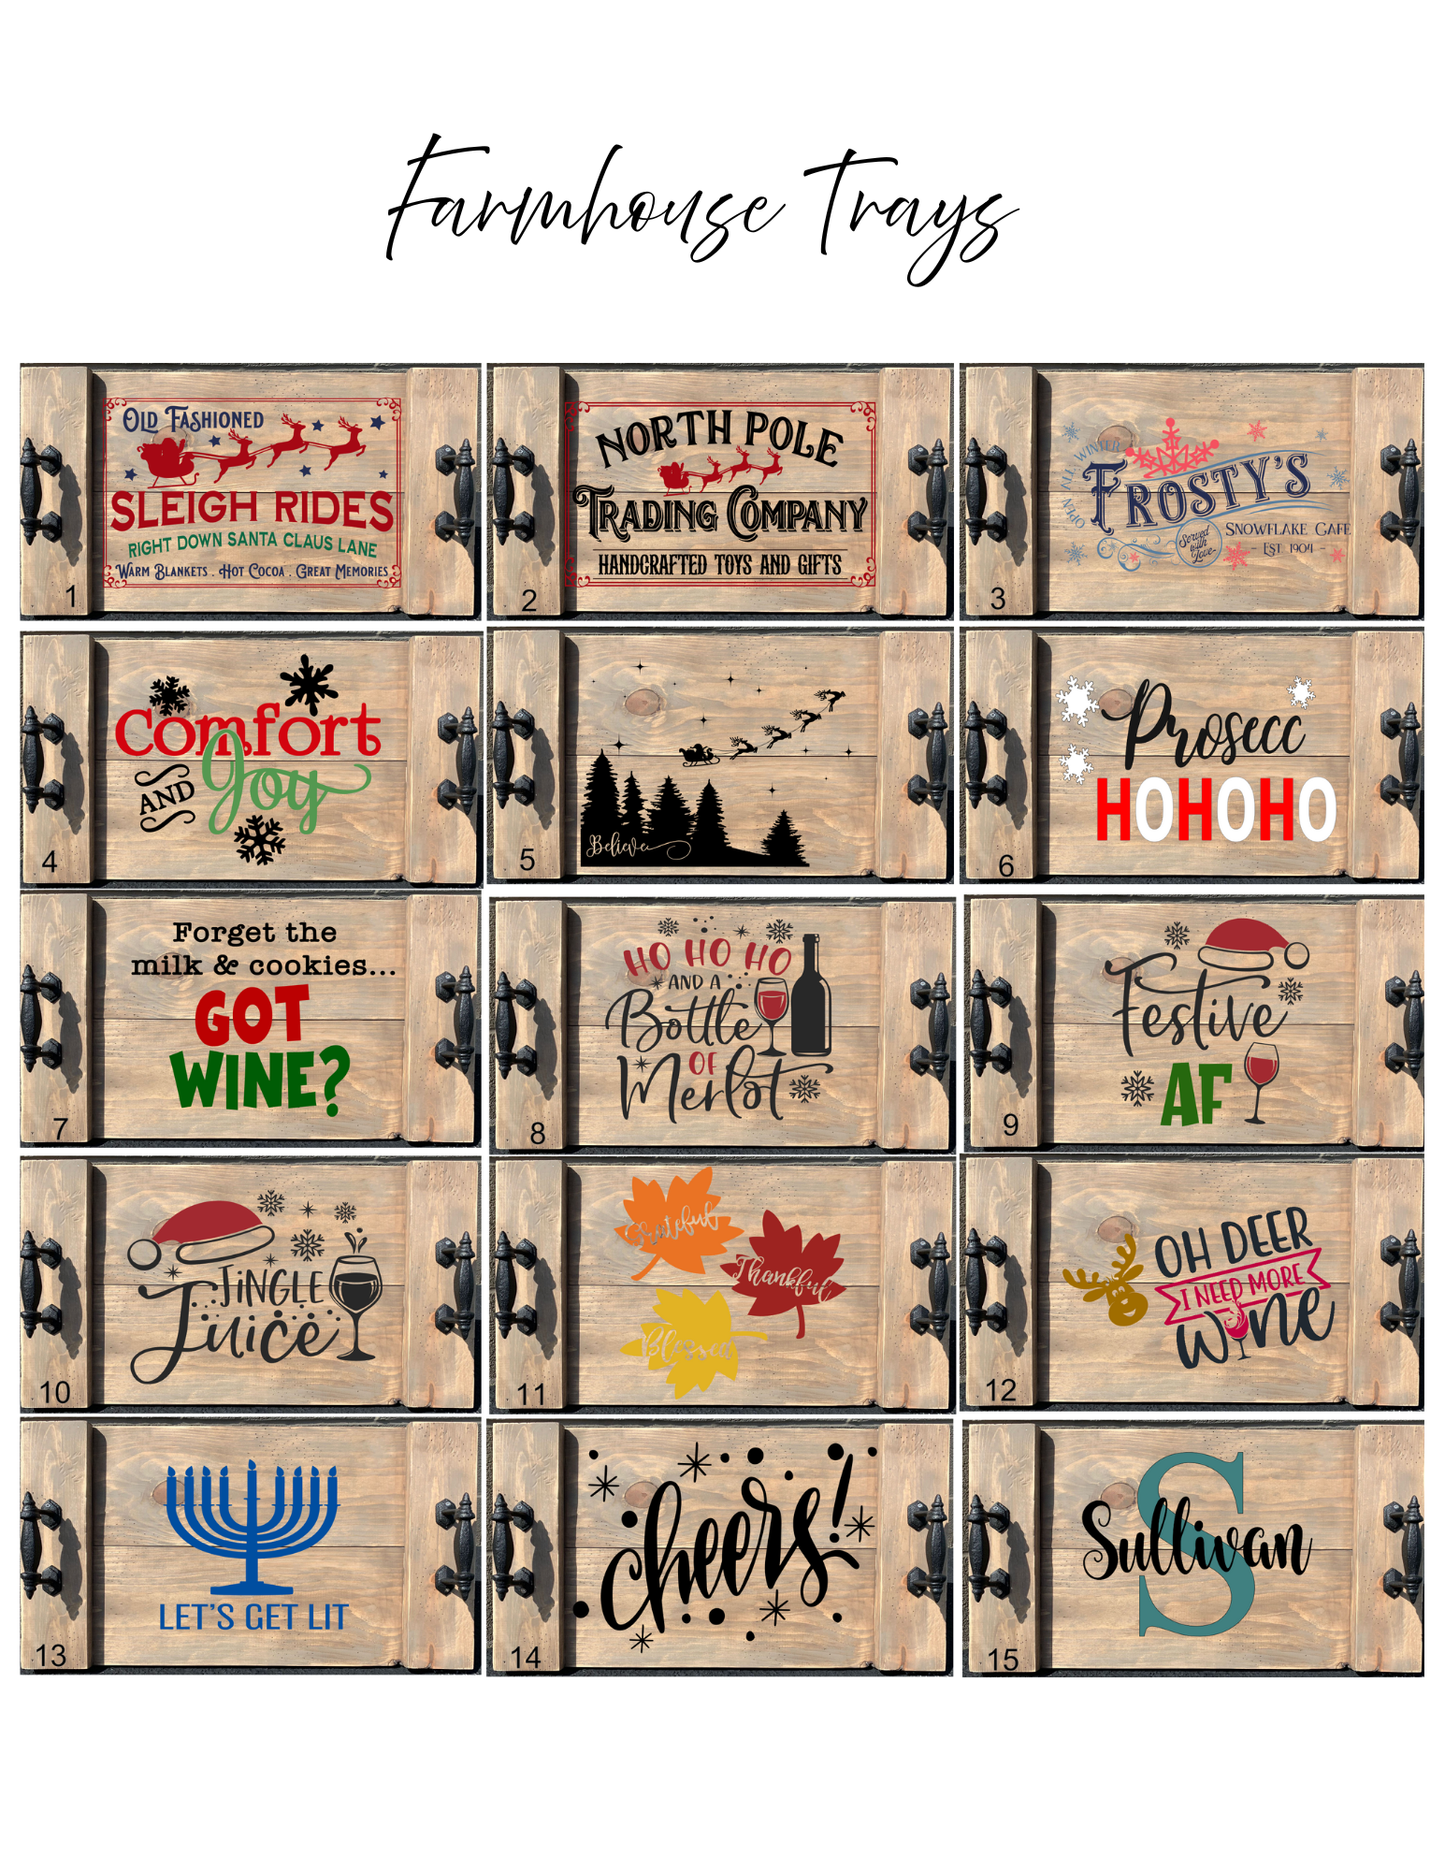 Farmhouse Trays
OLD FASHIONED
SLEIGH RIDES
RIGHT DOWN SANTA CLAUS LANE
WARM BLANKETS . HOT COCOA . GREAT MEMORIES
1
NORTH POLE
TRADING COMPANY
HANDCRAFTED TOYS AND GIFTS
2
OPEN ALL WINTER
FROSTY'S
Served with Love
SNOWFLAKE CAFE
- EST. 1904 -
3
Comfort
AND Joy
4
Believe
5
Prosecc
HOHOHO
6
Forget the
milk & cookies...
GOT
WINE?
7
HO HO HO
AND A
Bottle
OF
Merlot
8
Festive
AF
9
JINGLE
Juice
10
Grateful
Thankful
Blessed
11
OH DEER
I NEED MORE
wine
12
LET'S GET LIT
13
cheers!
14
S
Sullivan
15